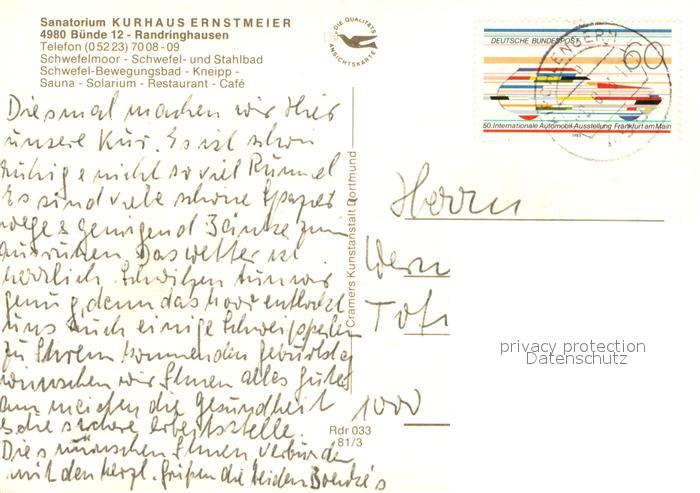 Sanatorium KURHAUS ERNSTMEIER
4980 Bünde 12 - Randringhausen
Telefon (05223) 7008-09
Schwefelmoor - Schwefel- und Stahlbad
Schwefel-Bewegungsbad - Kneipp -
Sauna - Solarium - Restaurant - Café
DIE QUALITÄTS
ANSICHTSKARTE
DEUTSCHE BUNDESPOST
60
50. Internationale Automobil-Ausstellung Frankfurt am Main
1983
Diesmal machen wir hier
unsere Kur. Es ist schön
ruhig & nicht so viel Rummel
Es sind viele schöne Spazier
wege & genügend Bänke zum
Ausruhen. Das Wetter ist
herrlich. Schwitzen tun wir
genug, denn das Moor entlockt
uns auch einige Schweißperlen
Zu Ihrem kommenden Geburtstag
wünschen wir Ihnen alles Gute
am meisten die Gesundheit
& die sichere Arbeitsstelle.
Dies wünschen Ihnen verbunden
mit den herzl. Grüßen die beiden
Cramers Kunstanstalt Dortmund
Herrn
1000
Rdr 033
81/3
privacy protection
Datenschutz